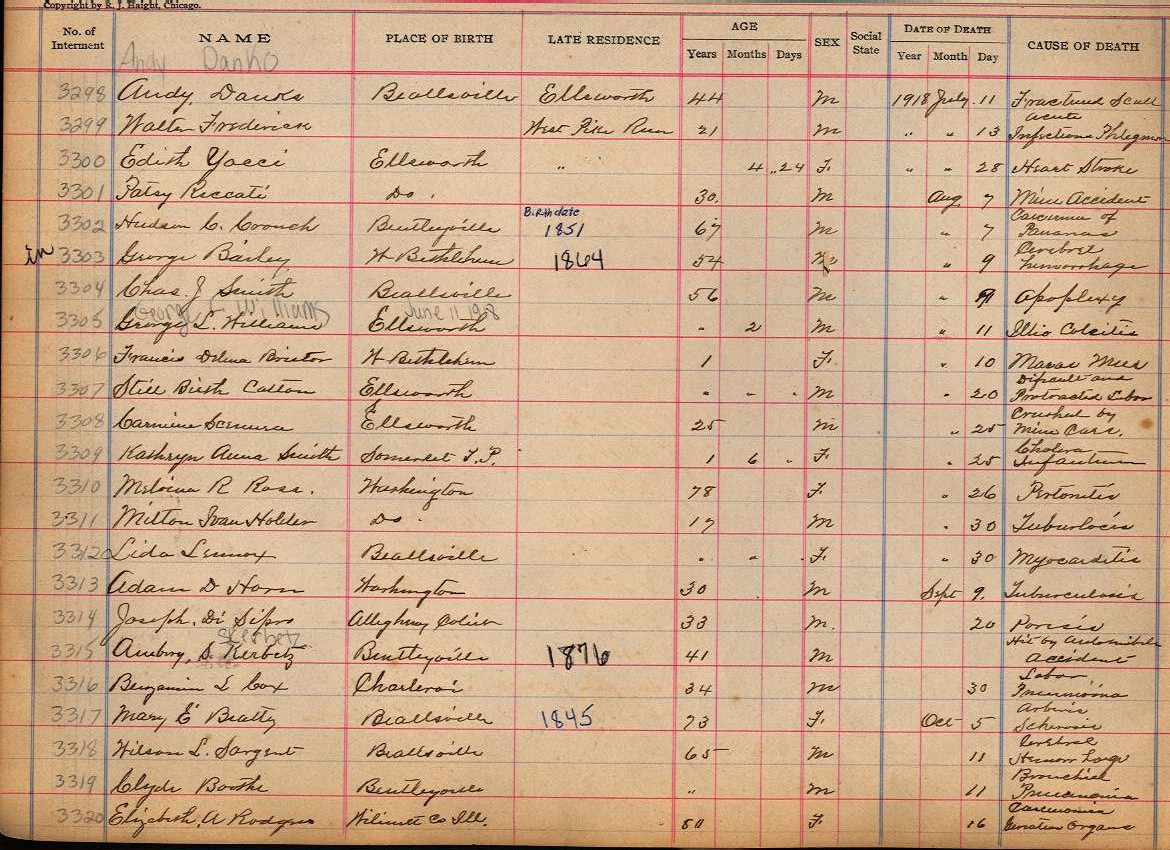 Copyright by R. J. Haight, Chicago.
No. of Interment NAME PLACE OF BIRTH LATE RESIDENCE AGE Years Months Days SEX Social State DATE OF DEATH Year Month Day CAUSE OF DEATH
Andy Danko
3298 Andy, Danks Beallsville Ellsworth 44 M 1918 July 11 Fractured Scull
3299 Walter Frederick West Pike Run 21 M " " 13 acute Infectious Phlegmon
3300 Edith Yacci Ellsworth " 4 24 F. " " 28 Heart Stroke
3301 Patsy Riccati Do. 30. M Aug 7 Mine Accident
Birthdate
3302 Hudson C. Crouch Bentleyville 1851 67 M " 7 Carcinma of Pananas
in 3303 George Bailey W Bethlehem 1864 54 " 9 Cerebrel hemorrhage
3304 Chas. J Smith Beallsville 56 M " 9 Apoplexy
George L Williams June 11 1918
3305 George L. Williams Ellsworth " 2 M " 11 Illio Colcitis
3306 Francis Delma Bristor W Bethlehem 1 F. " 10
3307 Still Birth Catton Ellsworth " " " M " 20 Dificult and Protracted Labor
3308 Carmine Scemura Ellsworth 25 M " 25 Crushed by Mine Cars.
3309 Kathryn Anna Smith Somerset T.P. 1 6 " F. " 25 Cholera Infantum
3310 Melvina R Ross. Washington 78 F. " 26 Pertonitis
3311 Milton Ivan Holder Do. 17 M " 30 Tuburlocis
3312 Lida Lennox Beallsville " " " F. " 30 Myocarditis
3313 Adam D Horn Washington 30 M Sept 9. Tuburculosis
3314 Joseph. Di Sipro Alleghney 33 M. 20 Paresis
Skerbetz
3315 S. Kerbetz Bentleyville 1876 41 M Hit by Automobile accident
3316 Benjamin L Cox Charleroi 34 M 30 Lobar Pneumonia
3317 Mary E Beatty Beallsville 1845 73 F. Oct 5 Sclerosis
3318 Wilson L. Sargent Beallsville 65 M 11 Cerebral Hemorrhage
3319 Clyde Boothe Bentleyville " M 11 Bronchial Pneumonia
3320 Elizabeth. A Rodgers Co Ill. 80 F. 16 Carcinonia Organs